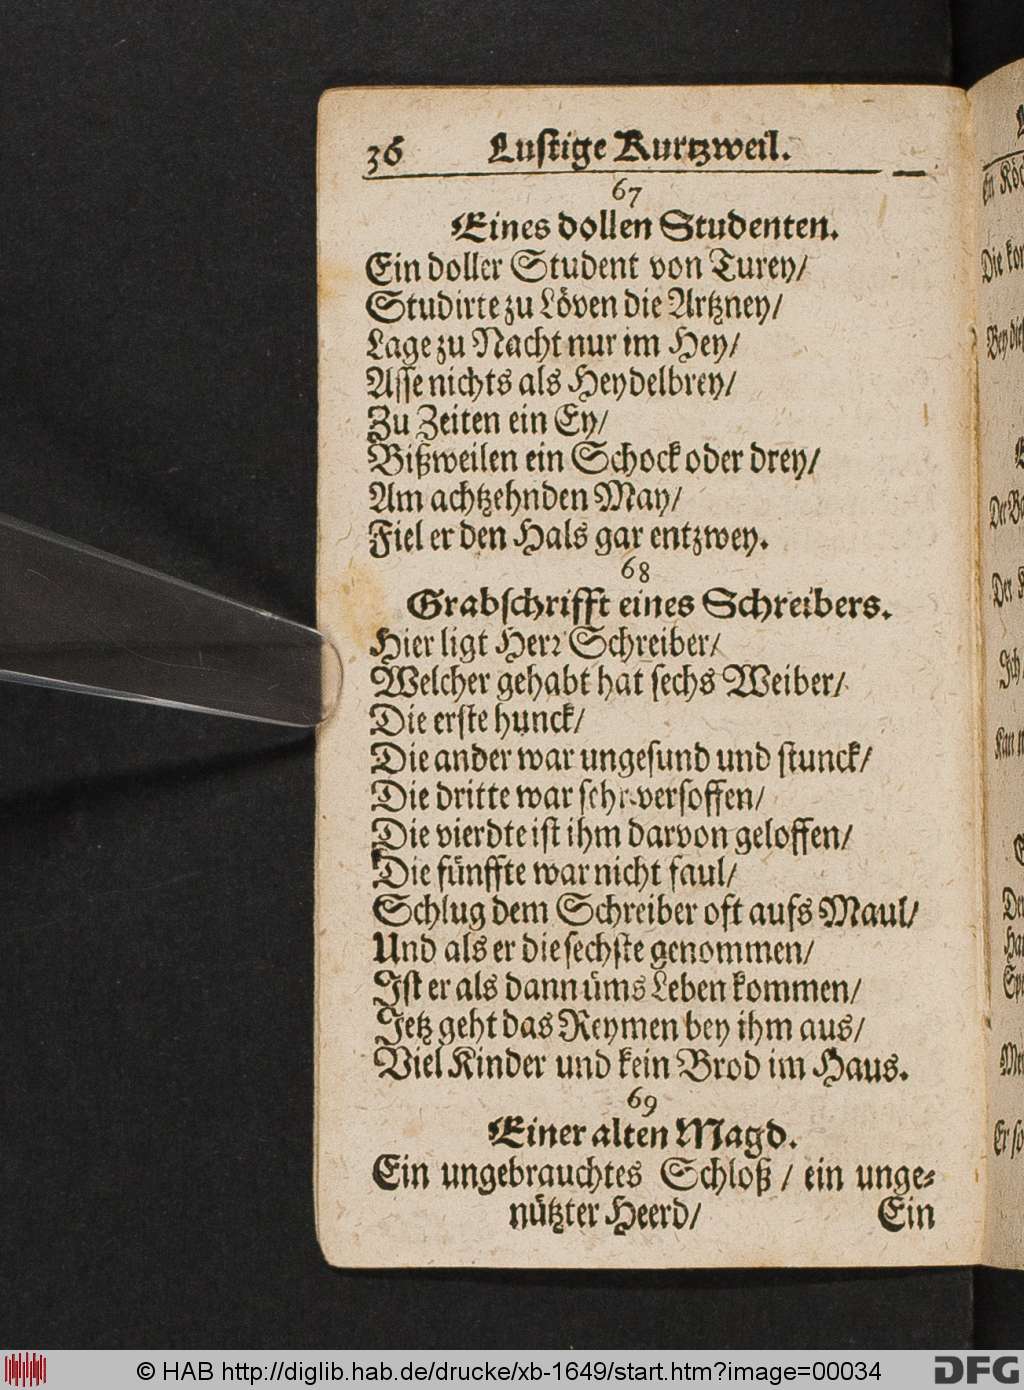 36 Lustige Kurtzweil.
67
Eines dollen Studenten.
Ein doller Student von Turey/
Studirte zu Löven die Artzney/
Lage zu Nacht nur im Hey/
Asse nichts als Heydelbrey/
Zu Zeiten ein Ey/
Bißweilen ein Schock oder drey/
Am achtzehnden May/
Fiel er den Hals gar entzwey.
68
Grabschrifft eines Schreibers.
Hier ligt Herr Schreiber/
Welcher gehabt hat sechs Weiber/
Die erste hunck/
Die ander war ungesund und stunck/
Die dritte war sehr versoffen/
Die vierdte ist ihm darvon geloffen/
Die fünffte war nicht faul/
Schlug dem Schreiber oft aufs Maul/
Und als er die sechste genommen/
Ist er als dann üms Leben kommen/
Jetz geht das Reymen bey ihm aus/
Viel Kinder und kein Brod im Haus.
69
Einer alten Magd.
Ein ungebrauchtes Schloß / ein unge-
nützter Heerd/ Ein
© HAB http://diglib.hab.de/drucke/xb-1649/start.htm?image=00034
DFG